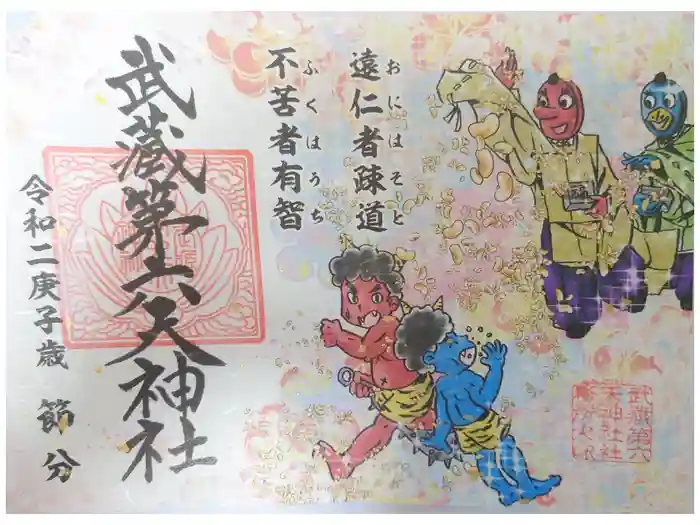 遠仁者疎道
おにはそと
不苦者有智
ふくはうち
武蔵第六天神社
令和二庚子歳 節分
武蔵第六
天神社社